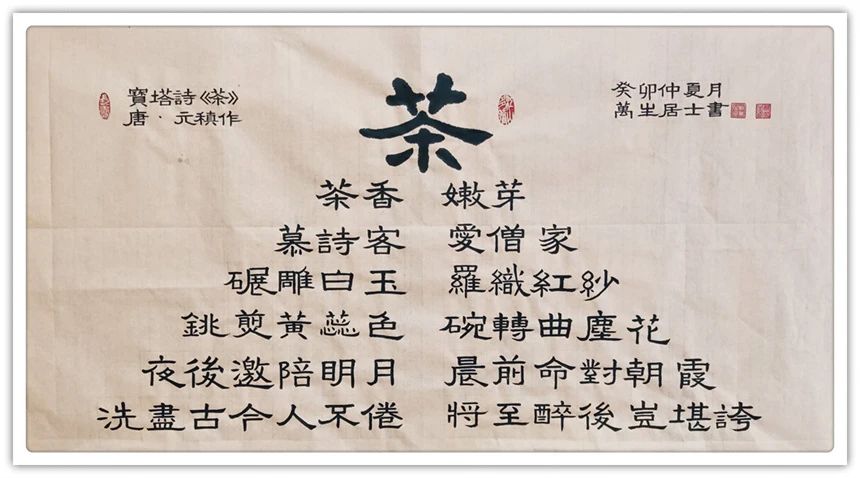 寶塔詩《茶》
唐·元稹作
茶
茶香 嫩芽
慕詩客 愛僧家
碾雕白玉 羅織紅紗
銚煎黃蕊色 碗轉曲塵花
夜後邀陪明月 晨前命對朝霞
洗盡古今人不倦 將至醉後豈堪誇
癸卯仲夏月
萬生居士書